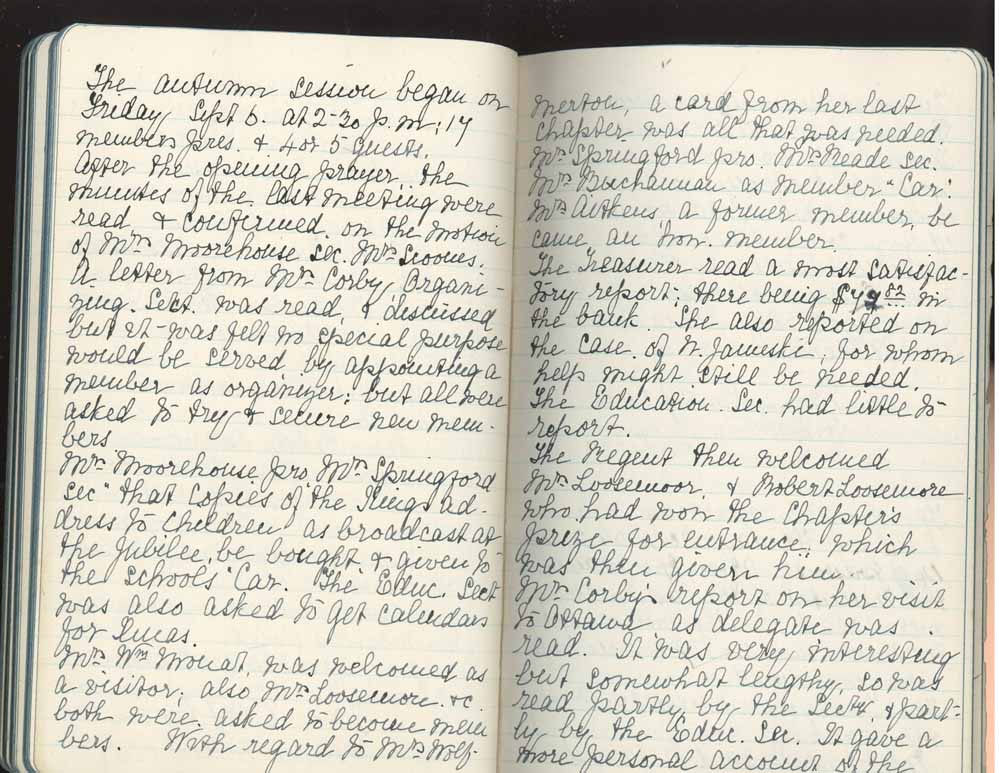 The autumn session began on
Friday Sept 6. at 2-30 p.m: 17
members pres. & 4 or 5 guests.
After the opening prayer, the
minutes of the last meeting were
read & confirmed, on the motion
of Mrs Moorehouse sec. Mrs Scones.
A letter from Mrs Corby, Organi-
zing. Sect. was read, & discussed
but it was felt no special purpose
would be served by appointing a
member as organizer; but all were
asked to try & secure new mem-
bers
Mrs Moorehouse pro. Mrs Springford
sec "that copies of the Kings ad-
dress to children as broadcast at
the Jubilee, be bought & given to
the schools" Car. The Educ. Sect
was also asked to get calendars
for Xmas.
Mrs Wm Mouat, was welcomed as
a visitor; also Mrs Loosemore. &c.
both were asked to become mem
bers. With regard to Mrs Wolf-
merton, a card from her last
chapter was all that was needed.
Mrs Springford pro. Mrs Reade sec.
Mrs Buchannan as member "Car".
Mrs Aitkens, a former member, be
came an hon. member.
The Treasurer read a most satisfac-
tory report; there being $49 82 in
the bank. She also reported on
the case of N. Jameski, for whom
help might still be needed.
The Education. Sec. had little to
report.
The Regent then welcomed
Mrs Loosemoor, & Robert Loosemore
who had won the Chapter's
prize for entrance, which
was then given him.
Mrs Corby's report on her visit
to Ottawa as delegate was
read. It was very interesting
but somewhat lengthy, so was
read partly by the Secty, & part-
ly by the Educ. Sec. It gave a
more personal account of the